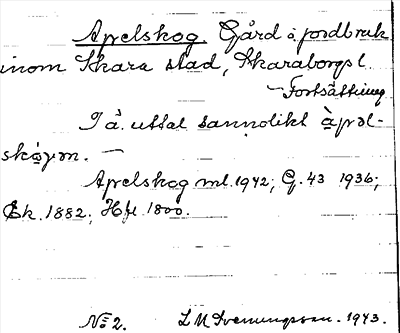 Apelskog. Gård o. jordbruk
inom Skara stad, Skaraborgs l.
— Fortsättning
I ä. uttal sannolikt àpəl-
skòγən. —
Apelskog ml. 1942; G. 43 1936;
Ek. 1882; Hfl. 1800.
No 2. L M Svenungsson. 1943.